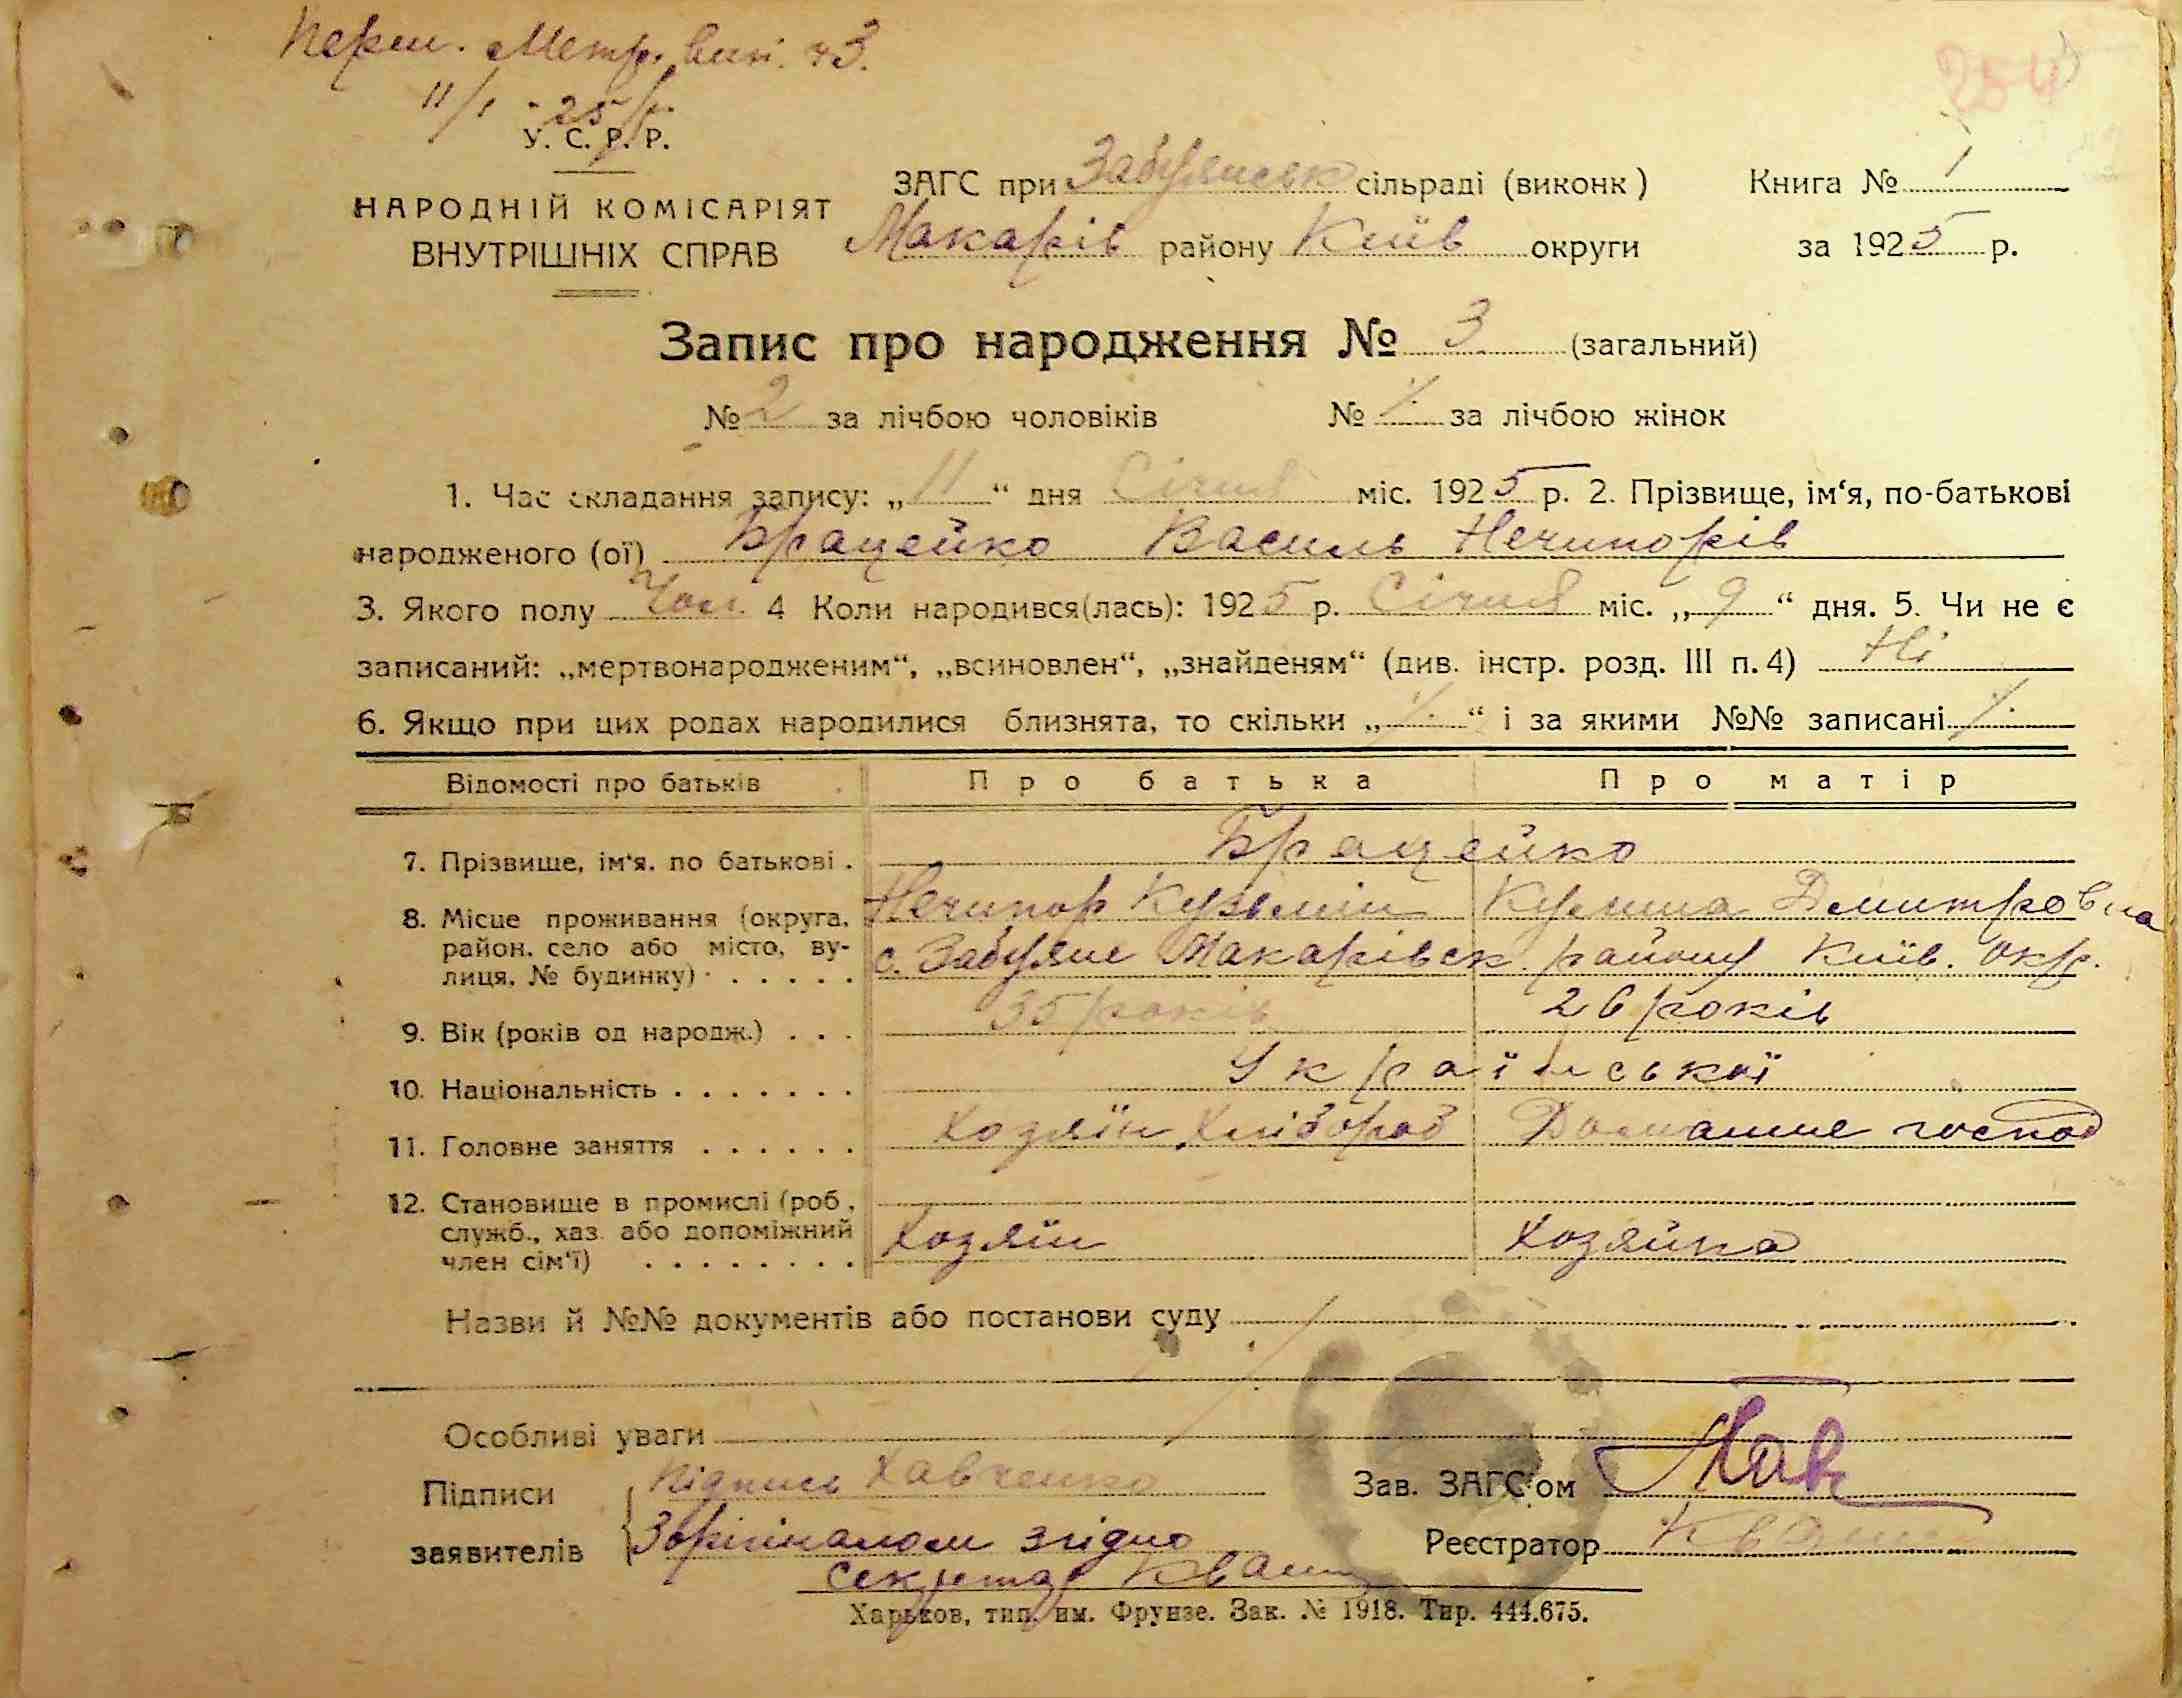 Перш. Метр. вип. ч 3.
11/I - 25 р.
254
У. С. Р. Р.
НАРОДНІЙ КОМІСАРІЯТ
ВНУТРІШНІХ СПРАВ
ЗАГС при Забуянськ сільраді (виконк) Книга № 1
Макарів району Київ округи за 1925 р.
Запис про народження № 3 (загальний)
№ 2 за лічбою чоловіків № за лічбою жінок
1. Час складання запису: „11“ дня Січня міс. 1925 р. 2. Прізвище, ім‘я, по-батькові
народженого (ої) Брацейко Василь Нечипорів
3. Якого полу Чол. 4 Коли народився(лась): 1925 р. Січня міс. „9“ дня. 5. Чи не є
записаний: „мертвонародженим“, „всиновлен“, „знайденям“ (див. інстр. розд. III п. 4) Ні
6. Якщо при цих родах народилися близнята, то скільки „ “ і за якими №№ записані
Відомості про батьків Про батька Про матір
7. Прізвище, ім‘я. по батькові . Брацейко
Нечипор Кузьмін Кулина Дмитровна
8. Місце проживання (округа, район. село або місто, вулиця, № будинку) с. Забуяне Макарівськ. району Київ. окр.
9. Вік (років од народж.) . . . 35 років 26 років
10. Національність . . . . . . . Української
11. Головне заняття . . . . . . Хозяїн, Хлібороб Домашнє господ
12. Становище в промислі (роб., служб., хаз. або допоміжний член сім‘ї) . . . . . . . . Хозяїн Хозяйка
Назви й №№ документів або постанови суду
Особливі уваги
Підписи заявителів Підпись Хавченко
З орігіналом згідно
Секретар Кваш
Зав. ЗАГС‘ом
Реєстратор Кваш
Харьков, тип. им. Фрунзе. Зак. № 1918. Тир. 444.675.